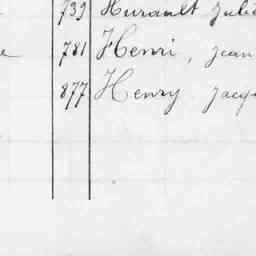 739 Hurault Julie
e 781 Henri, Jean
877 Henry Jacq